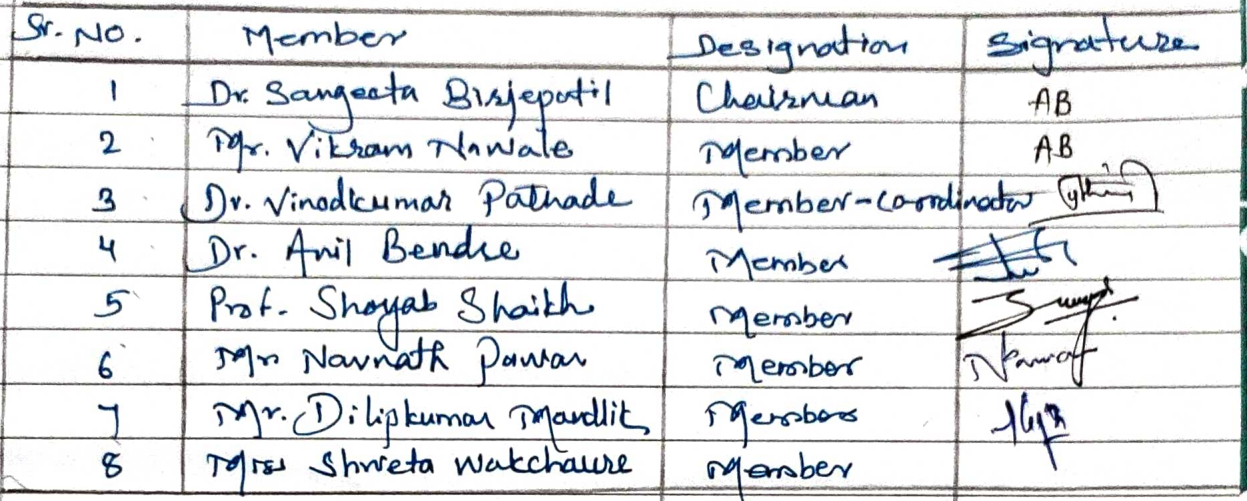 Sr. No. Member Designation Signature
1 Dr. Sangeeta Birjepatil Chairman AB
2 Mr. Vikram Nawale Member AB
3 Dr. Vinodkumar Pathade Member-coordinator
4 Dr. Anil Bendre Member
5 Prof. Shoyab Shaikh Member
6 Mr Navnath Pawar Member
7 Mr. Dilipkumar Mandlik Member
8 Miss Shweta Wakchaure Member